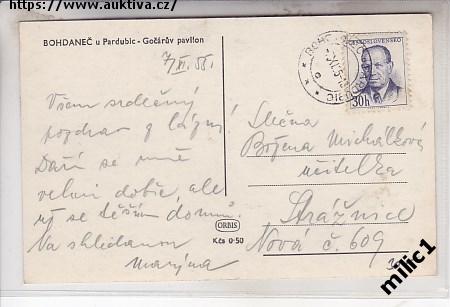 https://www.auktiva.cz/
BOHDANEČ u Pardubic - Gočárův pavilon
ČESKOSLOVENSKO
30h
Všem srdečný
pozdrav z lázní
Daří se mně
velmi dobře, ale
už se těším domů.
Na shledanou
Maryna
ORBIS
Kčs 0·50
Slečna
Božena Michálková
učitelka
Strážnice
Nová č. 609
milic1